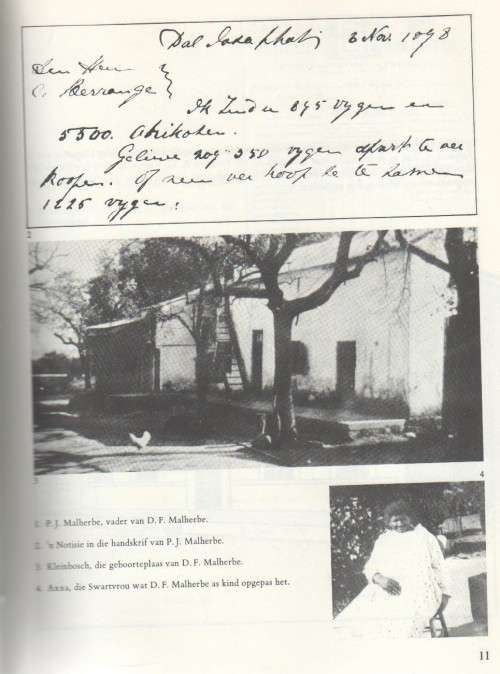 Dal Josaphat, 3 Nov. 1898
Den Heer
C. Berrange
Ik zend u 895 vygen en
5500. Abrikosen.
Gelieve nog 350 vygen apart te ver
koopen. Of neem ver hoop le te zamen
1225 vygen.
2
3
4
1. P.J. Malherbe, vader van D.F. Malherbe.
2. 'n Notisie in die handskrif van P.J. Malherbe.
3. Kleinbosch, die geboorteplaas van D.F. Malherbe.
4. Anna, die Swartvrou wat D.F. Malherbe as kind opgepas het.
11